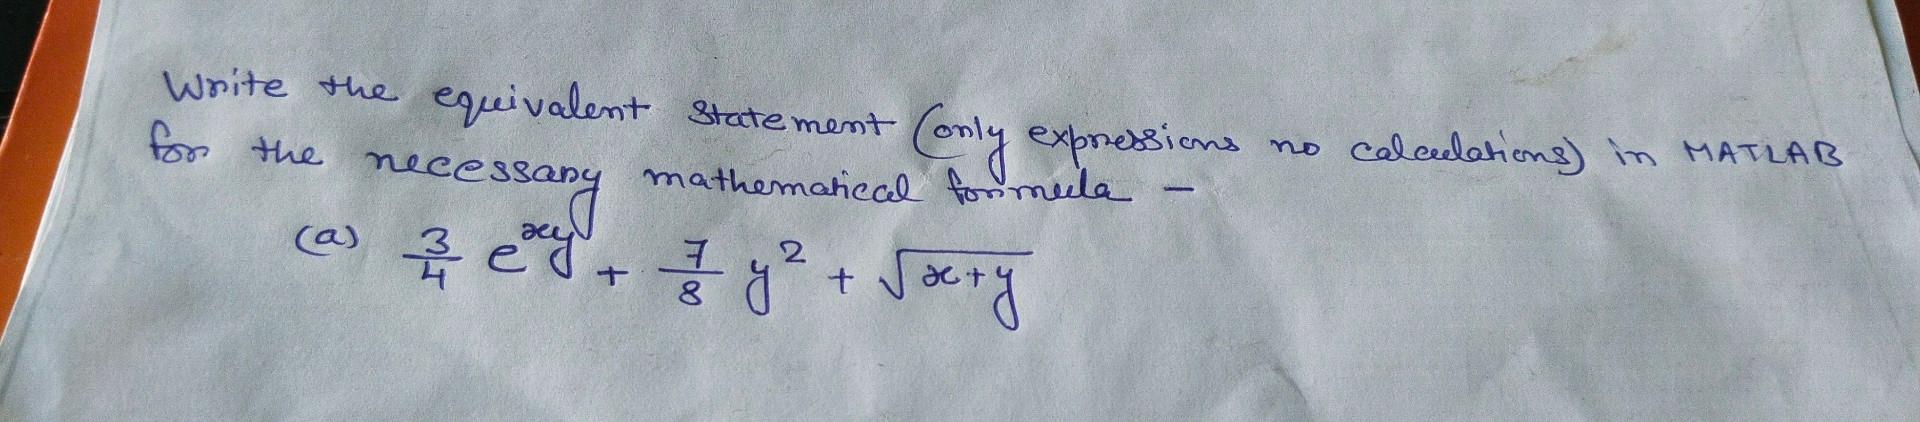 Write the equivalent statement (only expressions no calculations) in MATLAB
for the necessary mathematical formula -
(a) 3/4 e^xy + 7/8 y^2 + √(x+y)